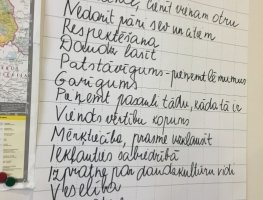 cienīt vienam otru
Nedarīt pāri sev un citiem
Respektēšana
Daudz lasīt
Patstāvīgums - pieņemt lēmumus
Garīgums
Pieņemt pasauli tādu, kāda tā ir
Vienots vērtību kopums
Mērķtiecība, prasme uzklausīt
Iekļauties sabiedrībā
Izpratne par daudzkultūru vidi
Veselība